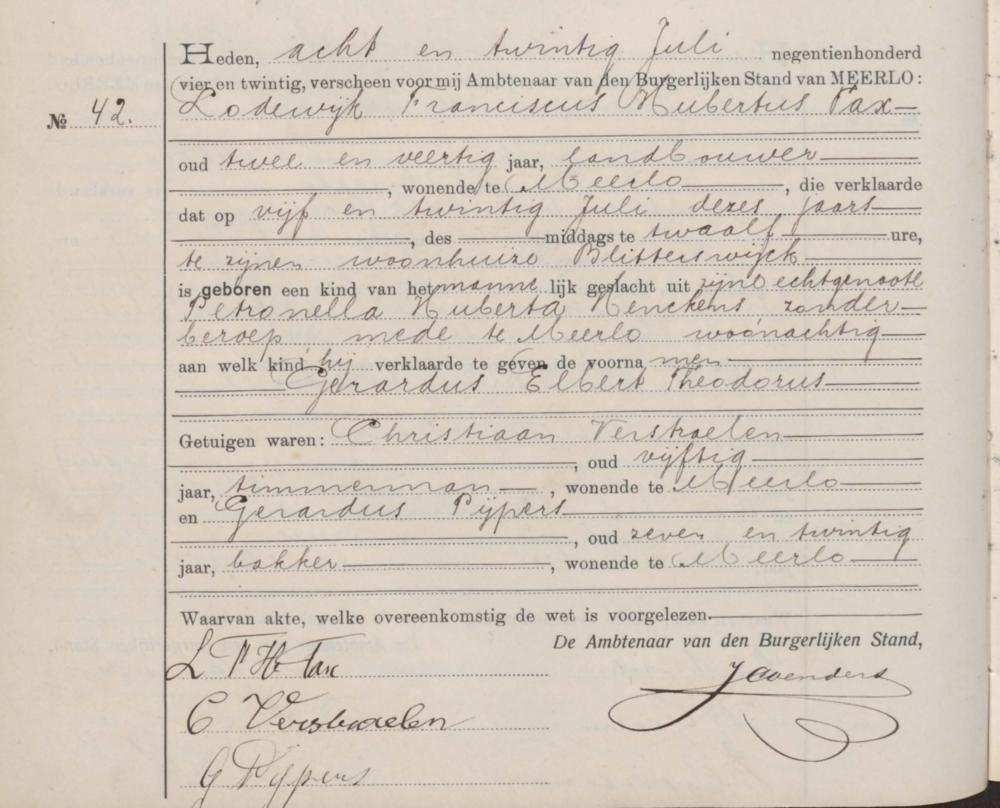 Heden, acht en twintig Juli negentienhonderd
vier en twintig, verscheen voor mij Ambtenaar van den Burgerlijken Stand van MEERLO:
№ 42. Lodewijk Franciscus Hubertus Tax
oud twee en veertig jaar, landbouwer
, wonende te Meerlo, die verklaarde
dat op vijf en twintig Juli dezes jaars
, des middags te twaalf ure,
te zijnen woonhuize Blitterswijck
is geboren een kind van het mannelijk geslacht uit zijne echtgenoote
Petronella Huberta Henckens zonder
beroep, mede te Meerlo woonachtig
aan welk kind hij verklaarde te geven de voornamen
Gerardus Elbert Theodorus
Getuigen waren: Christiaan Verstraelen
, oud vijftig
jaar, timmerman, wonende te Meerlo
en Gerardus Pijpers
, oud zeven en twintig
jaar, bakker, wonende te Meerlo
Waarvan akte, welke overeenkomstig de wet is voorgelezen.
De Ambtenaar van den Burgerlijken Stand,
L F H Tax
C Verstraelen
G Pijpers